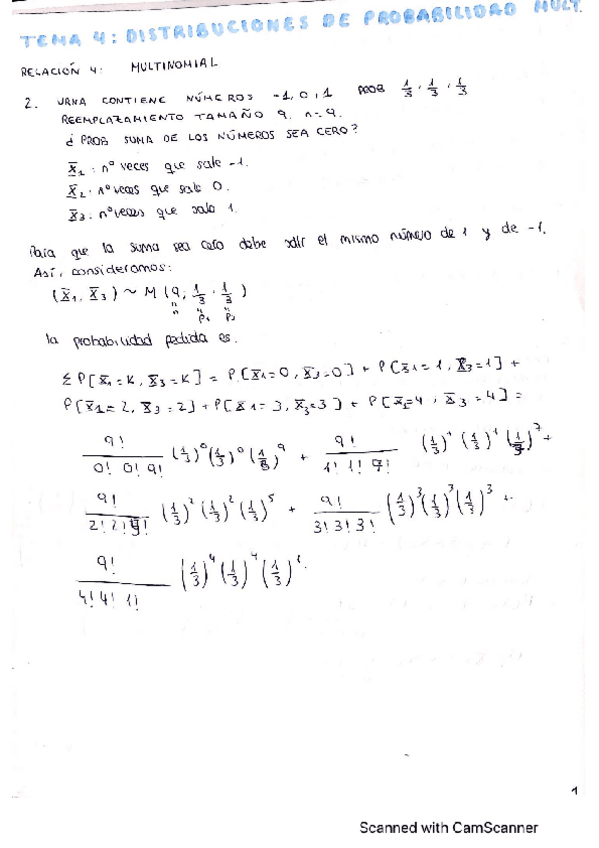 TEMA 4: DISTRIBUCIONES DE PROBABILIDAD MULT.
RELACIÓN 4: MULTINOMIAL
2. URNA CONTIENE NÚMEROS -1, 0, 1 PROB 1/3, 1/3, 1/3
REEMPLAZAMIENTO TAMAÑO 9. n=9.
¿PROB SUMA DE LOS NÚMEROS SEA CERO?
X1: nº veces que sale -1.
X2: nº veces que sale 0.
X3: nº veces que sale 1.
Para que la suma sea cero debe salir el mismo número de 1 y de -1.
Así, consideramos:
(X1, X3) ~ M (9, 1/3, 1/3)
n p1 p2
la probabilidad pedida es.
Σ P[X1=K, X3=K] = P[X1=0, X3=0] + P[X1=1, X3=1] +
P[X1=2, X3=2] + P[X1=3, X3=3] + P[X1=4, X3=4] =
9!/(0! 0! 9!) (1/3)^0 (1/3)^0 (1/3)^9 + 9!/(1! 1! 7!) (1/3)^1 (1/3)^1 (1/3)^7 +
9!/(2! 2! 5!) (1/3)^2 (1/3)^2 (1/3)^5 + 9!/(3! 3! 3!) (1/3)^3 (1/3)^3 (1/3)^3 +
9!/(4! 4! 1!) (1/3)^4 (1/3)^4 (1/3)^1.
1
Scanned with CamScanner